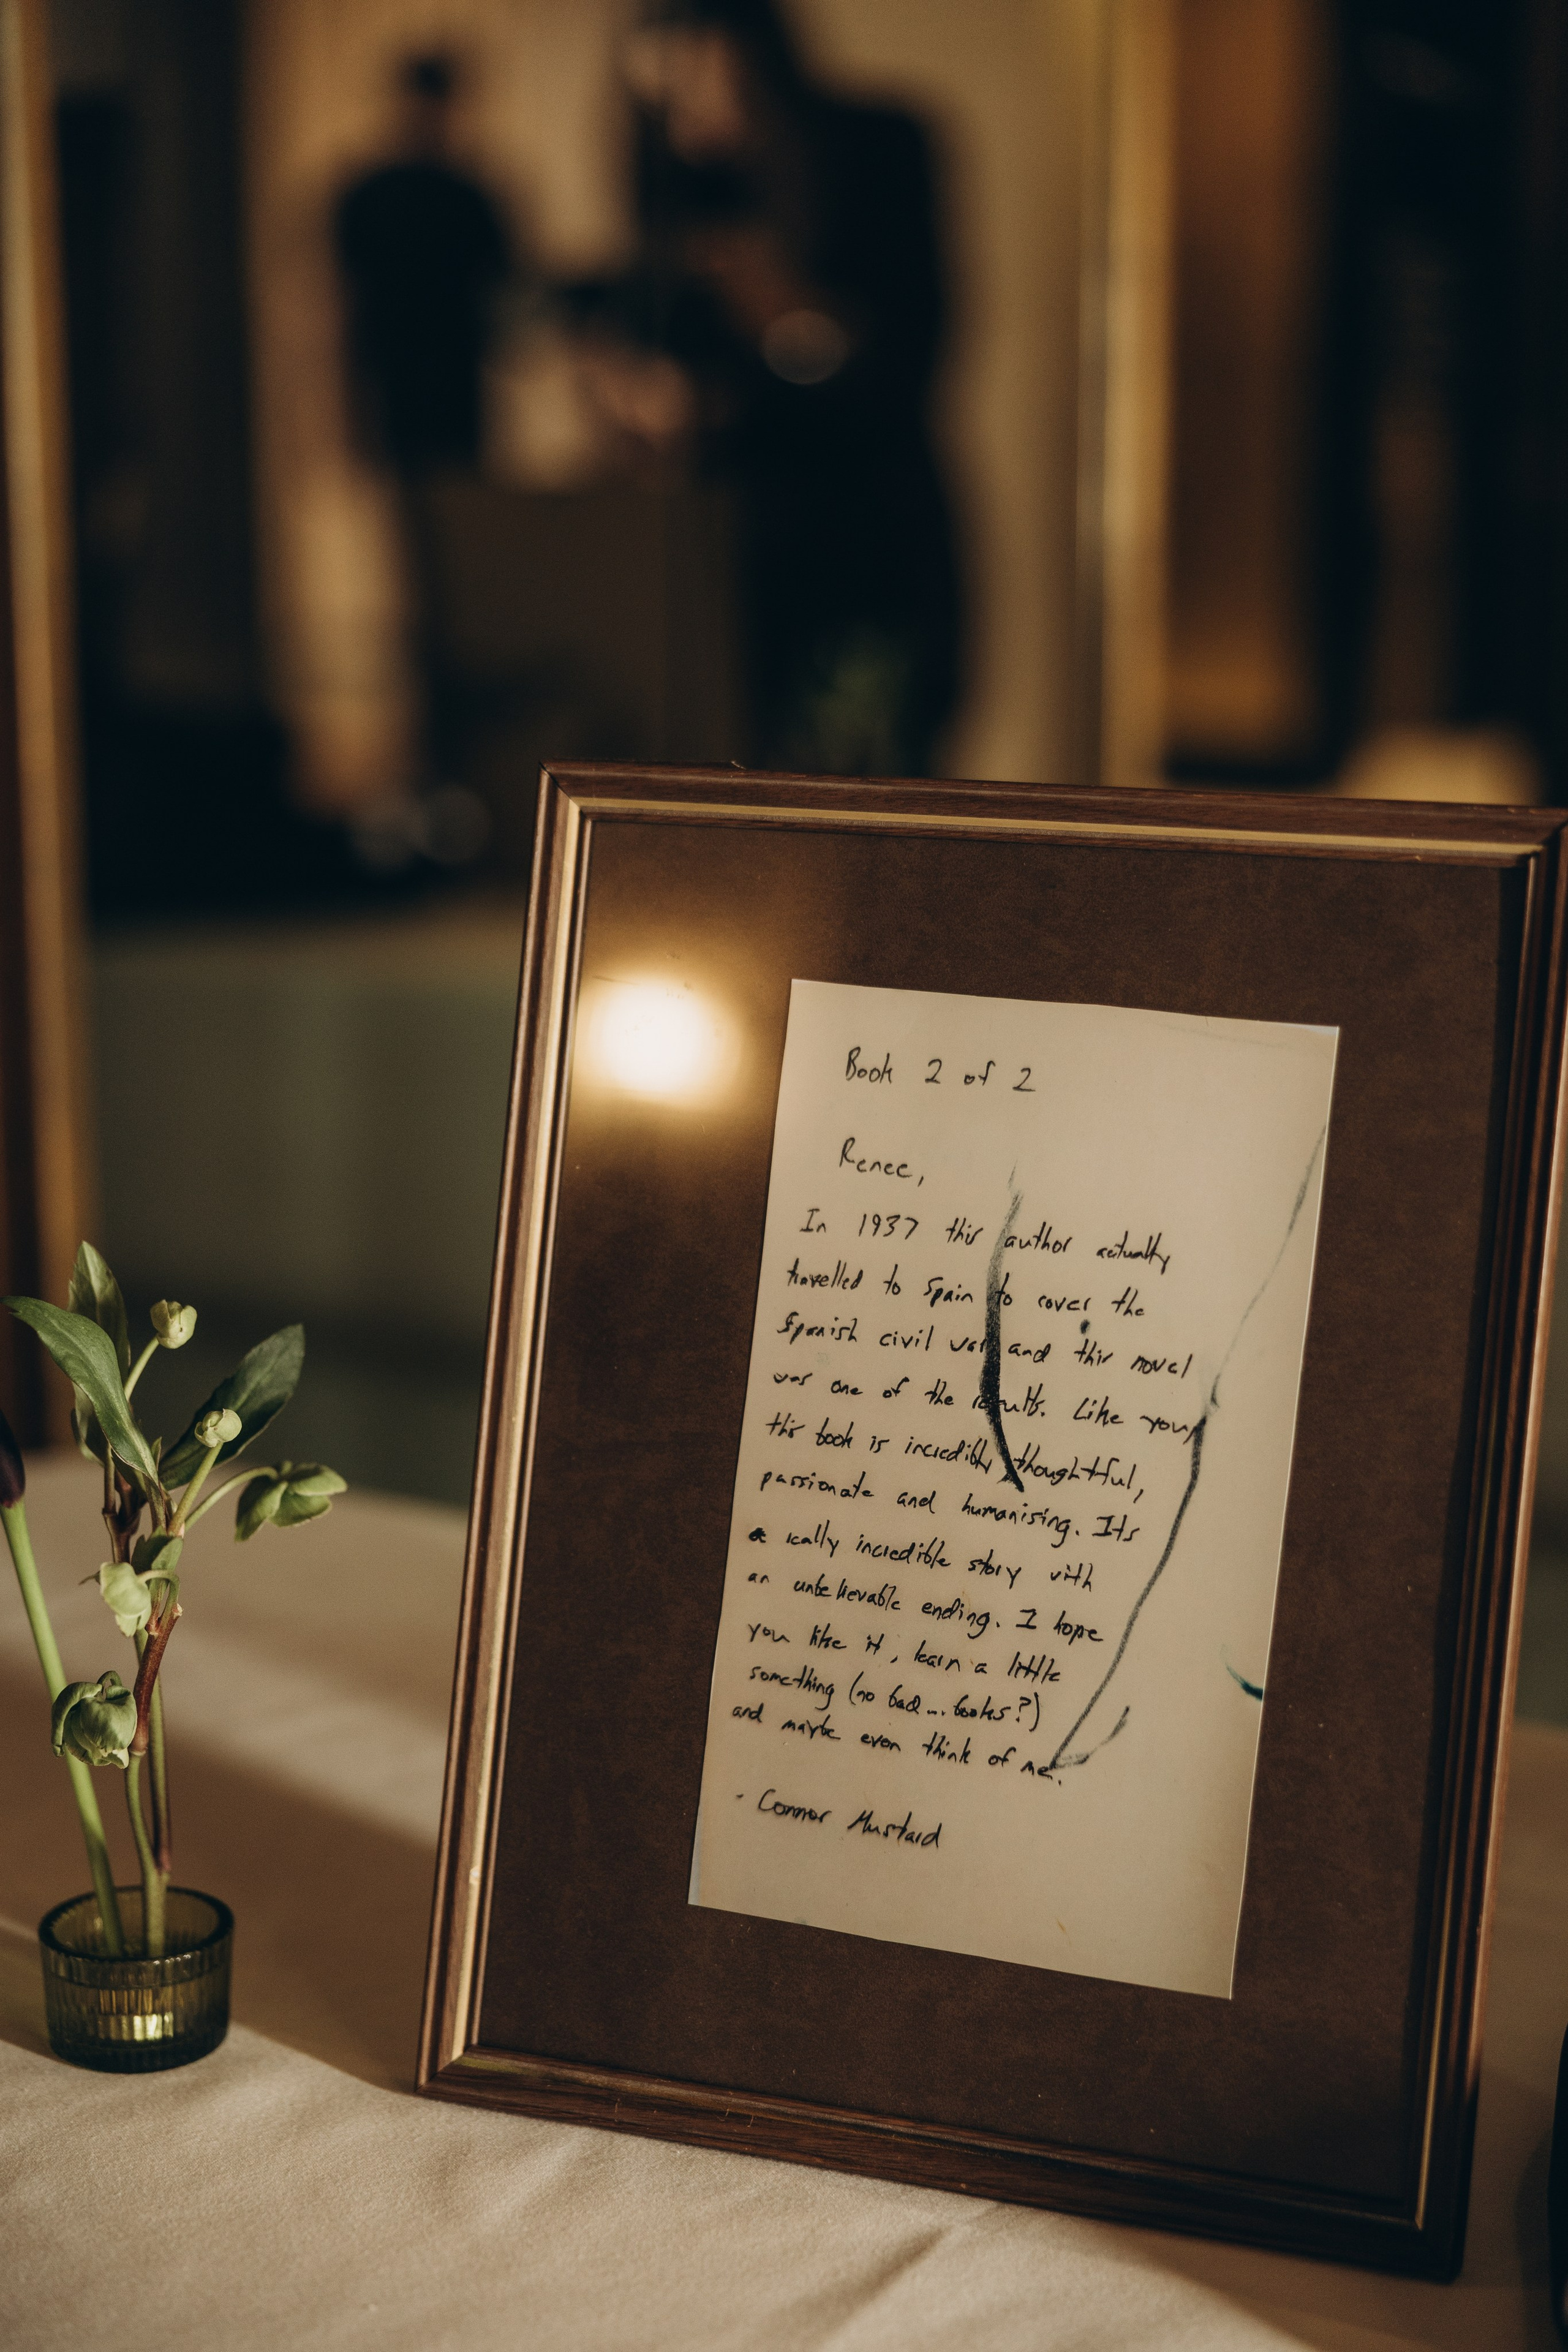 Book 2 of 2
Renee,
In 1937 this author actually
travelled to Spain to cover the
Spanish civil war and this novel
was one of the results. Like you,
this book is incredibly thoughtful,
passionate and humanising. Its
a really incredible story with
an unbelievable ending. I hope
you like it, learn a little
something (no bad... books?)
and maybe even think of me.
- Connor Mustard